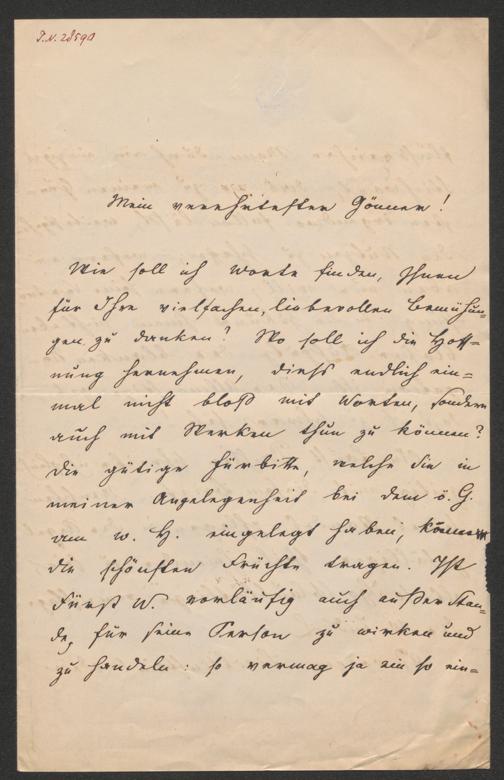 I.N. 28590
Mein verehrtester Gönner!
Wie soll ich Worte finden, Ihnen
für Ihre vielfachen, liebevollen Bemühun-
gen zu danken? Wo soll ich die Hoff-
nung hernehmen, dieß endlich ein-
mal nicht bloß mit Worten, sondern
auch mit Werken thun zu können?
Die gütige Fürbitte, welche Sie in
meiner Angelegenheit bei dem ö. G.
am w. H. eingelegt haben,
die schönsten Früchte tragen. Ist
Fürst W. vorläufig auch außer Stan-
de, für seine Person zu wirken und
zu handeln: so vermag ja ein so ein-